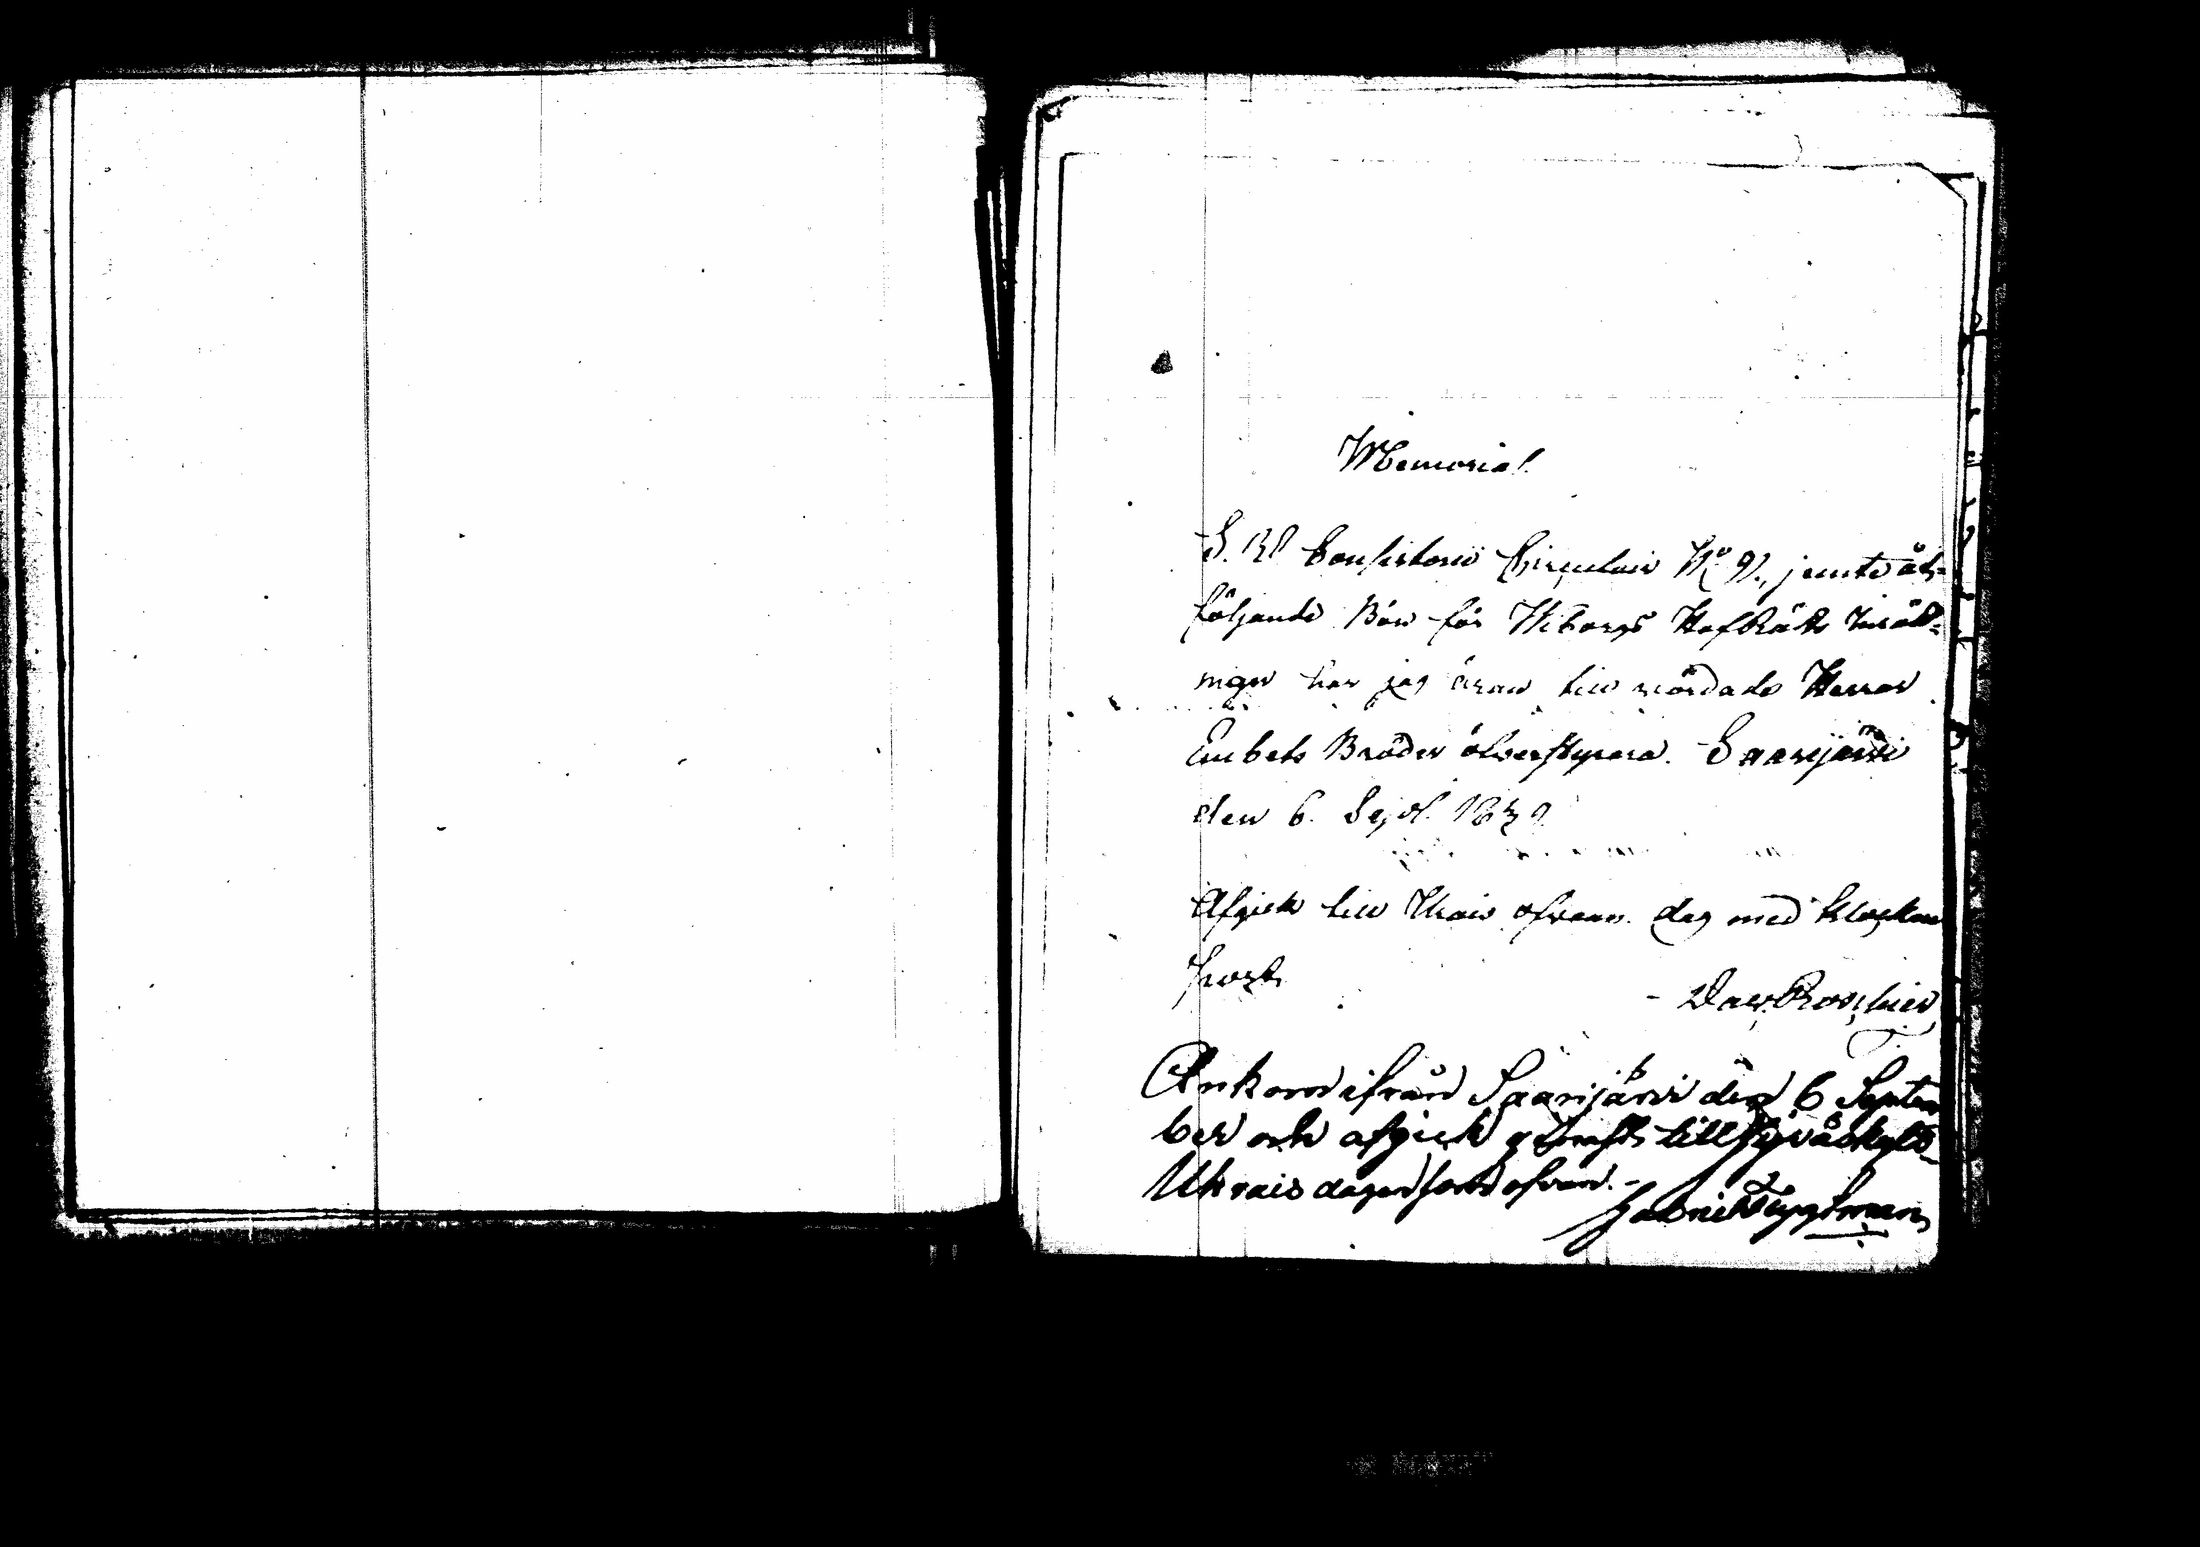 Memorial.
Consistorii Circulair No 9., jemte åt-
följande Bön för Wiborgs HofRätts Inrätt-
ningen har jag äran till wördade Herrar
Embets Bröder öfwerstyra. Saarijärvi
den 6. Sept. 1839
Afgick till Ukrais ofvann. dag med klockan
Ankom ifrån Saarijärvi den 6 Septem
ber och afgick genast till Jyväskylä
Ukrais dagen som ofvan.-
Gabriel